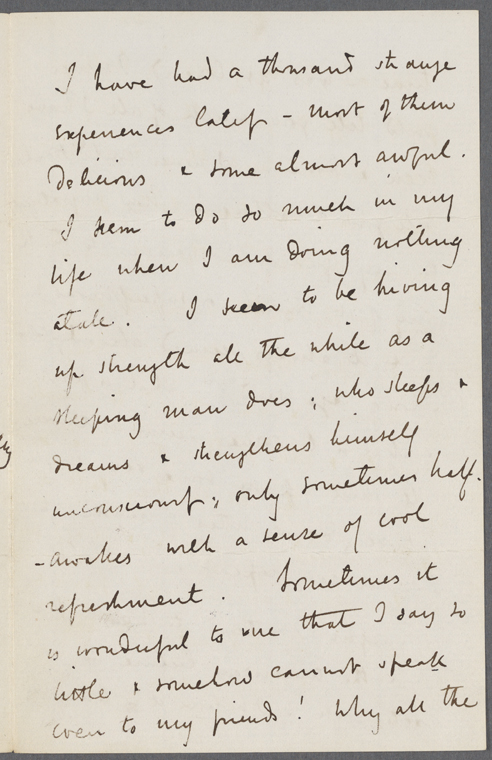 I have had a thousand strange
experiences lately – most of them
delicious & some almost awful.
I seem to do so much in my
life when I am doing nothing
at all. I seem to be hiving
up strength all the while as a
sleeping man does; who sleeps &
dreams & strengthens himself
unconsciously; only sometimes half-
-awakes with a sense of cool
refreshment. Sometimes it
is wonderful to me that I say so
little & somehow cannot speak
even to my friends! Why all the